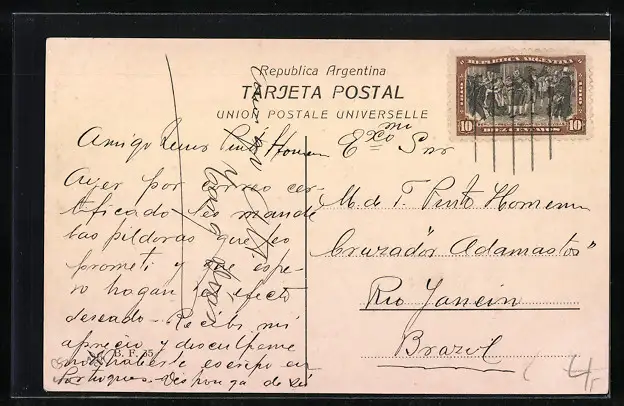 Republica Argentina
TARJETA POSTAL
UNION POSTALE UNIVERSELLE
REPUBLICA ARGENTINA
1810 1910
10 DIEZ CENTAVOS 10
Amigo Pinto Homem
Ayer por correo cer-
tificado les mandé
las píldoras que les
prometí y que espe-
ro hagan el efecto
deseado - Recibe mi
aprecio y disculpame
escripo en
Portugues
B. F. 35
Exmo Snr
M. de T. Pinto Homem
Cruzador "Adamastor"
Rio Janeiro
Brazil
4